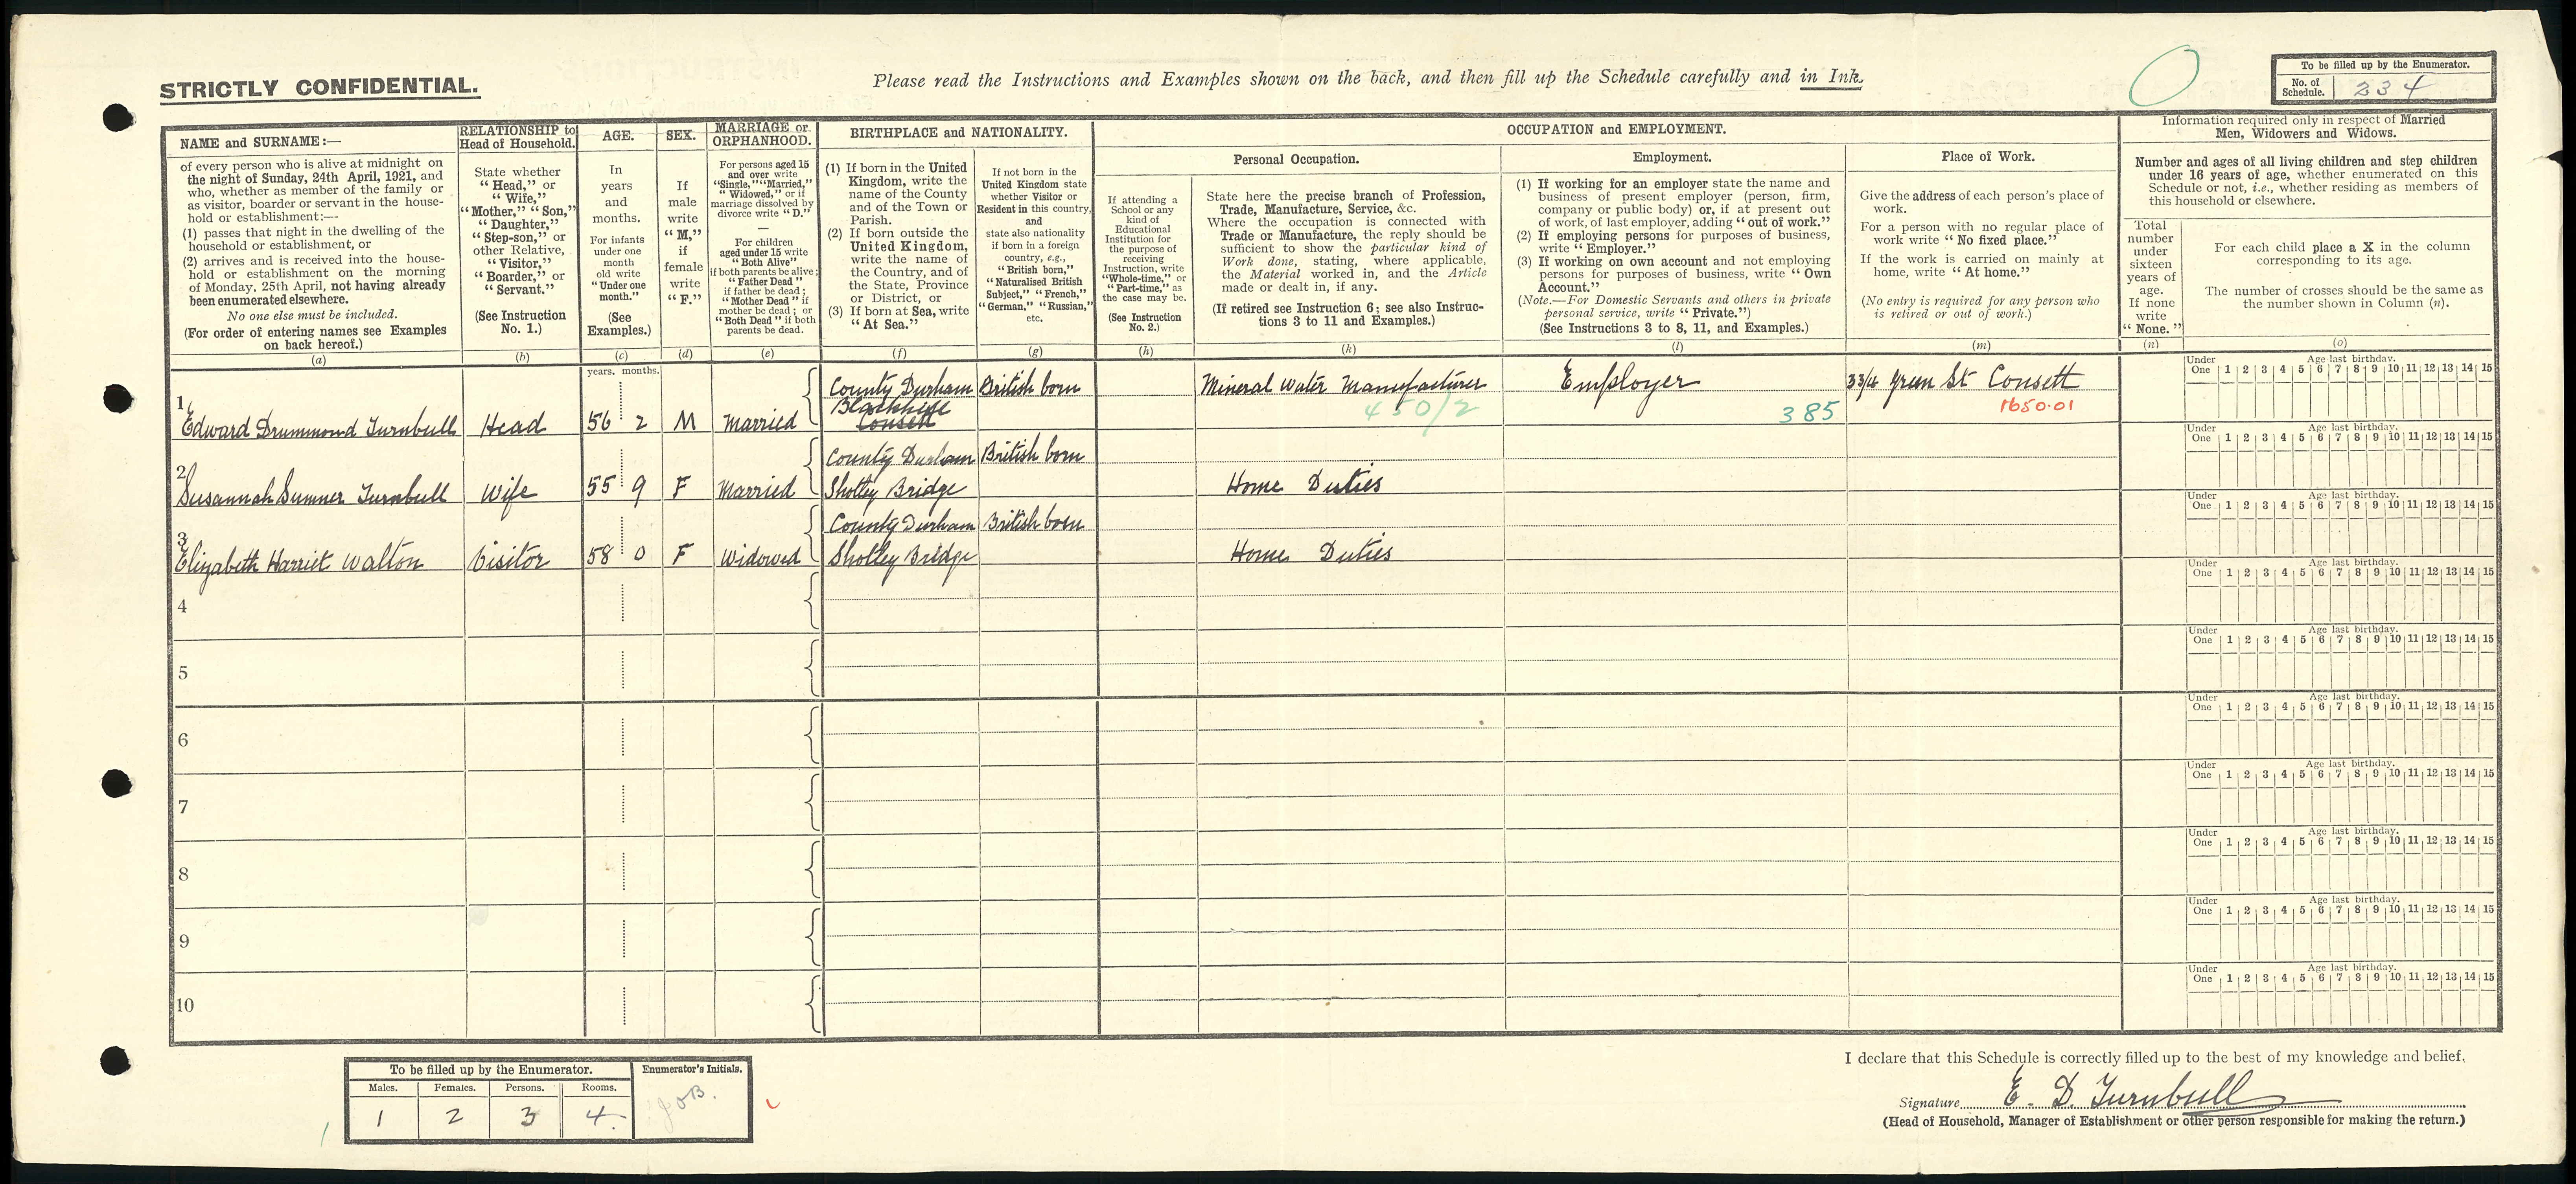 STRICTLY CONFIDENTIAL.
Please read the Instructions and Examples shown on the back, and then fill up the Schedule carefully and in Ink.
To be filled up by the Enumerator.
No. of Schedule. 234
NAME and SURNAME:—
of every person who is alive at midnight on
the night of Sunday, 24th April, 1921, and
who, whether as member of the family or
as visitor, boarder or servant in the house-
hold or establishment:—
(1) passes that night in the dwelling of the
household or establishment, or
(2) arrives and is received into the house-
hold or establishment on the morning
of Monday, 25th April, not having already
been enumerated elsewhere.
No one else must be included.
(For order of entering names see Examples
on back hereof.)
(a)
RELATIONSHIP to
Head of Household.
State whether
"Head," or
"Wife,"
"Mother," "Son,"
"Daughter,"
"Step-son," or
other Relative,
"Visitor,"
"Boarder," or
"Servant."
(See Instruction
No. 1.)
(b)
AGE.
In
years
and
months.
For infants
under one
month
old write
"Under one
month."
(See
Examples.)
(c)
SEX.
If
male
write
"M,"
if
female
write
"F."
(d)
MARRIAGE or
ORPHANHOOD.
For persons aged 15
and over write
"Single," "Married,"
"Widowed," or if
marriage dissolved by
divorce write "D."
—
For children
aged under 15 write
"Both Alive"
if both parents be alive;
"Father Dead"
if father be dead;
"Mother Dead" if
mother be dead; or
"Both Dead" if both
parents be dead.
(e)
BIRTHPLACE and NATIONALITY.
(1) If born in the United
Kingdom, write the
name of the County
and of the Town or
Parish.
(2) If born outside the
United Kingdom,
write the name of
the Country, and of
the State, Province
or District, or
(3) If born at Sea, write
"At Sea."
(f)
If not born in the
United Kingdom state
whether Visitor or
Resident in this country,
and
state also nationality
if born in a foreign
country, e.g.,
"British born,"
"Naturalised British
Subject," "French,"
"German," "Russian,"
etc.
(g)
OCCUPATION and EMPLOYMENT.
If attending a
School or any
kind of
Educational
Institution for
the purpose of
receiving
Instruction, write
"Whole-time," or
"Part-time," as
the case may be.
(See Instruction
No. 2.)
(h)
Personal Occupation.
State here the precise branch of Profession,
Trade, Manufacture, Service, &c.
Where the occupation is connected with
Trade or Manufacture, the reply should be
sufficient to show the particular kind of
Work done, stating, where applicable,
the Material worked in, and the Article
made or dealt in, if any.
(If retired see Instruction 6; see also Instruc-
tions 3 to 11 and Examples.)
(k)
Employment.
(1) If working for an employer state the name and
business of present employer (person, firm,
company or public body) or, if at present out
of work, of last employer, adding "out of work."
(2) If employing persons for purposes of business,
write "Employer."
(3) If working on own account and not employing
persons for purposes of business, write "Own
Account."
(Note.—For Domestic Servants and others in private
personal service, write "Private.")
(See Instructions 3 to 8, 11, and Examples.)
(l)
Place of Work.
Give the address of each person's place of
work.
For a person with no regular place of
work write "No fixed place."
If the work is carried on mainly at
home, write "At home."
(No entry is required for any person who
is retired or out of work.)
(m)
Information required only in respect of Married
Men, Widowers and Widows.
Number and ages of all living children and step children
under 16 years of age, whether enumerated on this
Schedule or not, i.e., whether residing as members of
this household or elsewhere.
Total
number
under
sixteen
years of
age.
If none
write
"None."
(n)
For each child place a X in the column
corresponding to its age.
The number of crosses should be the same as
the number shown in Column (n).
(o)
years. months.
Under One Age last birthday. 1 2 3 4 5 6 7 8 9 10 11 12 13 14 15
1 Edward Drummond Turnbull Head 56 2 M Married County Durham British born Mineral Water Manufacturer Employer 33/4 Green St Consett
Blackhill
Consett
450/2 385 1650.01
Under One Age last birthday. 1 2 3 4 5 6 7 8 9 10 11 12 13 14 15
2 Susannah Sumner Turnbull Wife 55 9 F Married County Durham British born
Shotley Bridge Home Duties
Under One Age last birthday. 1 2 3 4 5 6 7 8 9 10 11 12 13 14 15
3 Elizabeth Harriet Walton Visitor 58 0 F Widowed County Durham British born
Shotley Bridge Home Duties
4 Under One Age last birthday. 1 2 3 4 5 6 7 8 9 10 11 12 13 14 15
5 Under One Age last birthday. 1 2 3 4 5 6 7 8 9 10 11 12 13 14 15
6 Under One Age last birthday. 1 2 3 4 5 6 7 8 9 10 11 12 13 14 15
7 Under One Age last birthday. 1 2 3 4 5 6 7 8 9 10 11 12 13 14 15
8 Under One Age last birthday. 1 2 3 4 5 6 7 8 9 10 11 12 13 14 15
9 Under One Age last birthday. 1 2 3 4 5 6 7 8 9 10 11 12 13 14 15
10 Under One Age last birthday. 1 2 3 4 5 6 7 8 9 10 11 12 13 14 15
To be filled up by the Enumerator.
Males. Females. Persons. Rooms.
1 2 3 4.
Enumerator's Initials.
JOB.
I declare that this Schedule is correctly filled up to the best of my knowledge and belief,
Signature E. D. Turnbull
(Head of Household, Manager of Establishment or other person responsible for making the return.)